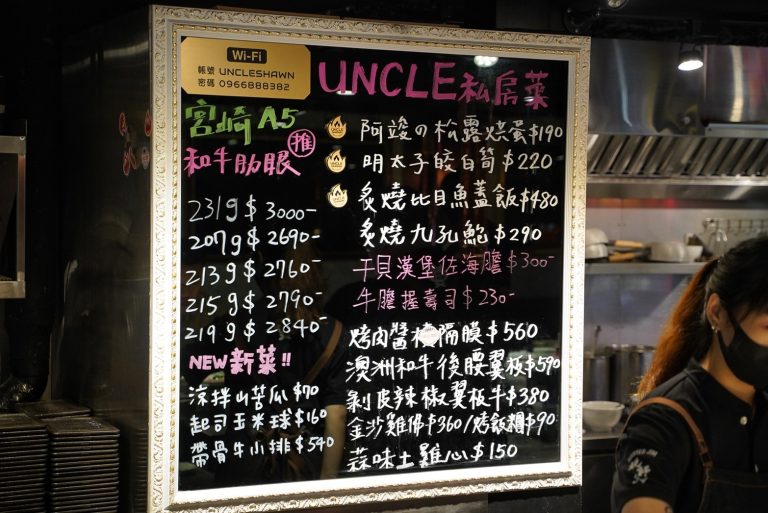 Wi-Fi
帳號 UNCLESHAWN
密碼 0966888382
UNCLE私房菜
宮崎A5
和牛肋眼 推
231g $ 3000-
207g $ 2690-
213g $ 2760-
215g $ 2790-
219g $ 2840-
NEW新菜!!
涼拌山苦瓜 $70
起司玉米球 $160
帶骨牛小排 $540
UNCLE 阿逡の松露烘蛋 $190
UNCLE 明太子皎白筍 $220
炙燒比目魚蓋飯 $480
炙燒九孔鮑 $290
干貝漢堡佐海膽 $300-
牛膽握壽司 $230-
烤肉醬橫隔膜 $560
澳洲和牛後腰翼板 $590
剝皮辣椒翼板牛 $380
金沙雞佛 $360/烤飯糰 $90
蒜味土雞心 $150